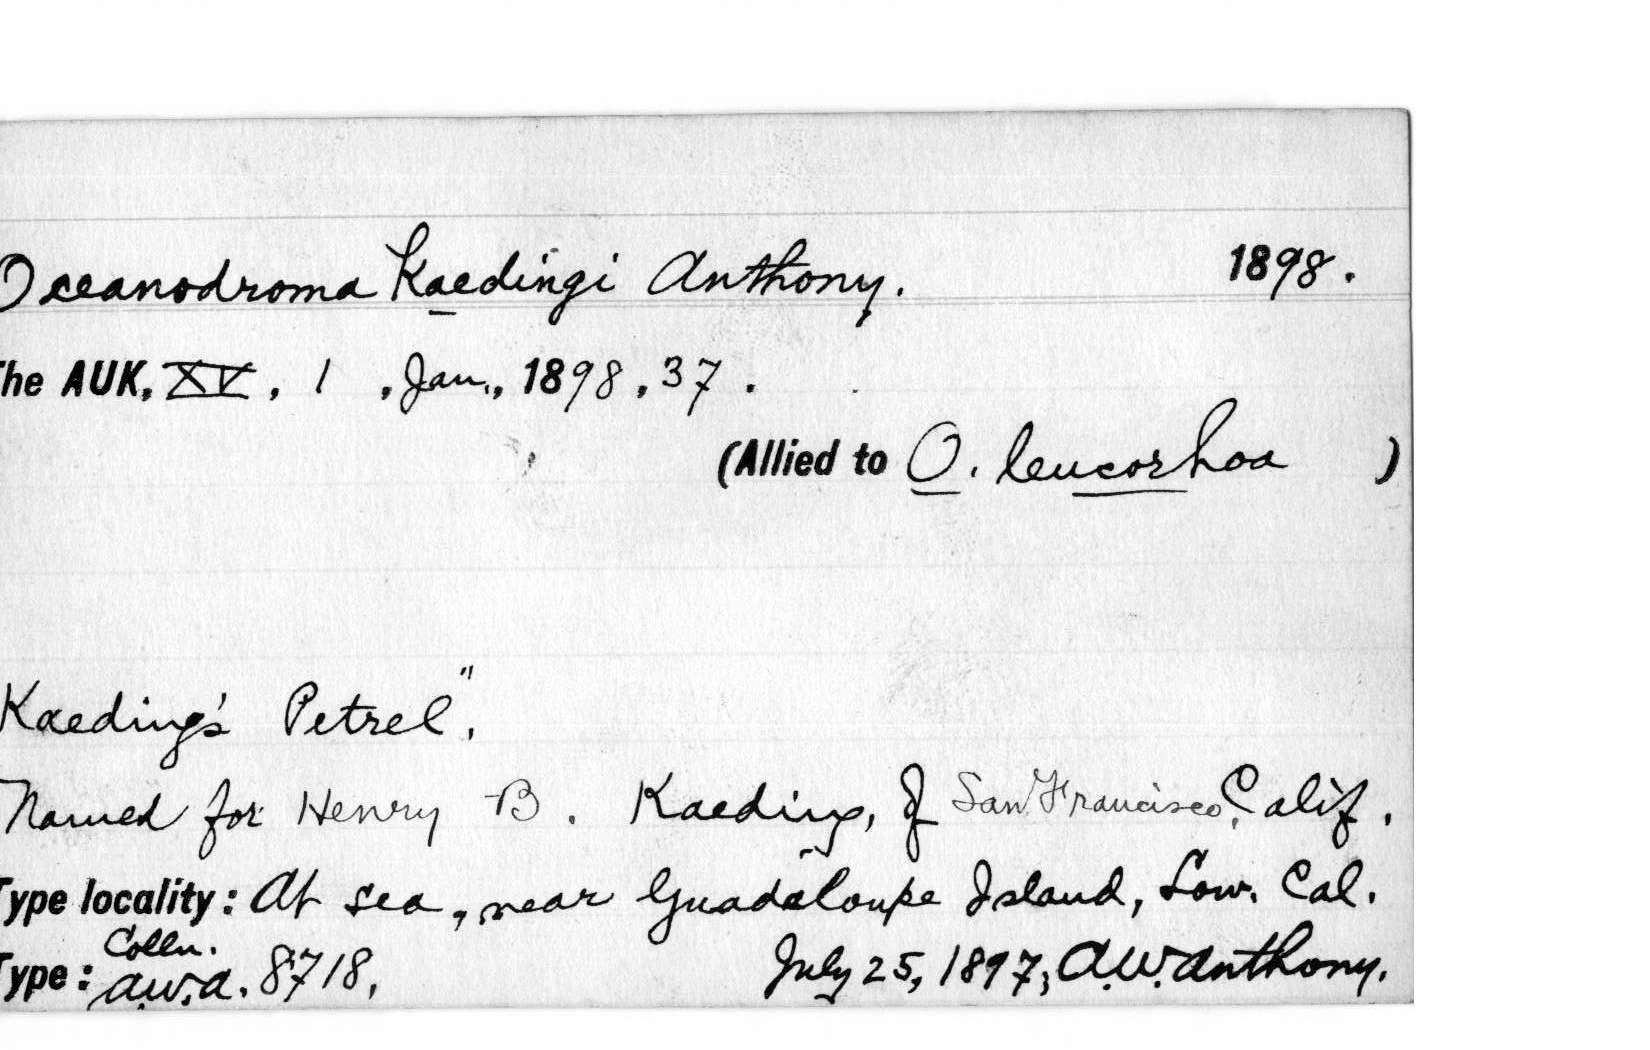 Oceanodroma Kaedingi Anthony. 1898.
The AUK, XV, 1, Jan., 1898, 37.
(Allied to O. leucorhoa )
Kaeding's Petrel".
Named for Henry B. Kaeding, of San Francisco, Calif.
Type locality: At sea, near Guadaloupe Island, Low. Cal.
Colln.
Type: A.W.A. 8718, July 25, 1897, A.W. Anthony.